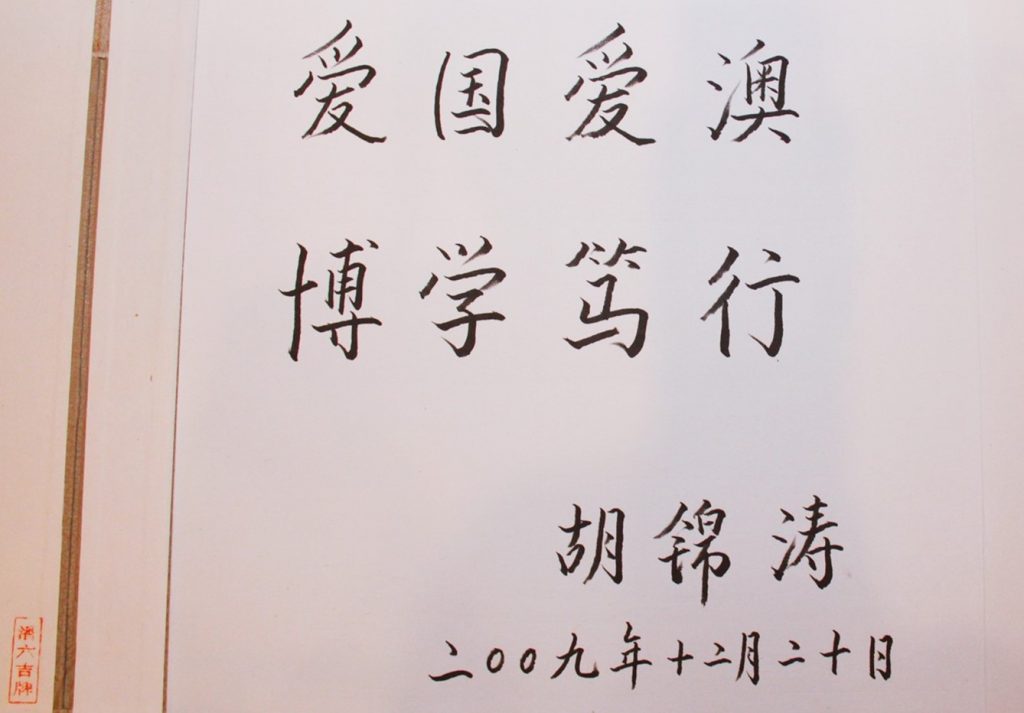 爱国爱澳
博学笃行
胡锦涛
二〇〇九年十二月二十日
六吉牌